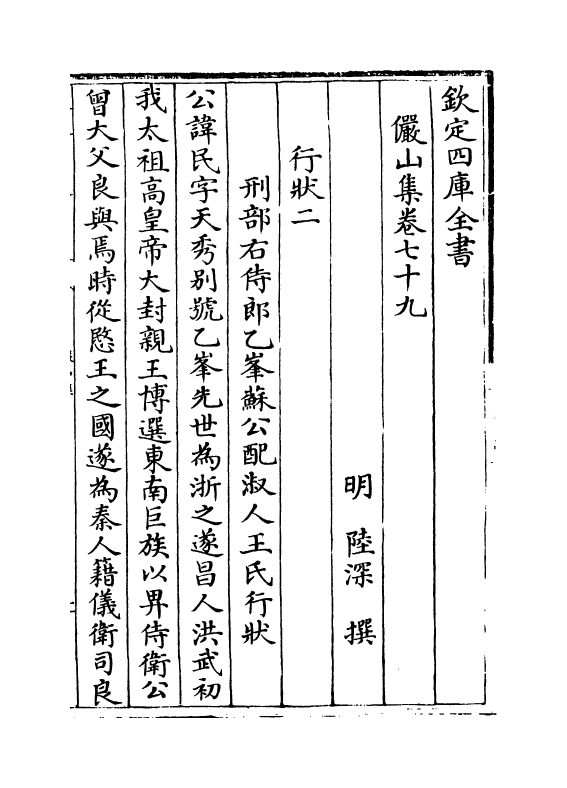 欽定四庫全書
儼山集卷七十九
明 陸深 撰
行狀二
刑部右侍郎乙峯蘇公配淑人王氏行狀
公諱民字天秀别號乙峯先世為浙之遂昌人洪武初
我太祖高皇帝大封親王博選東南巨族以畀侍衛公
曾大父良與焉時從愍王之國遂為秦人籍儀衛司良